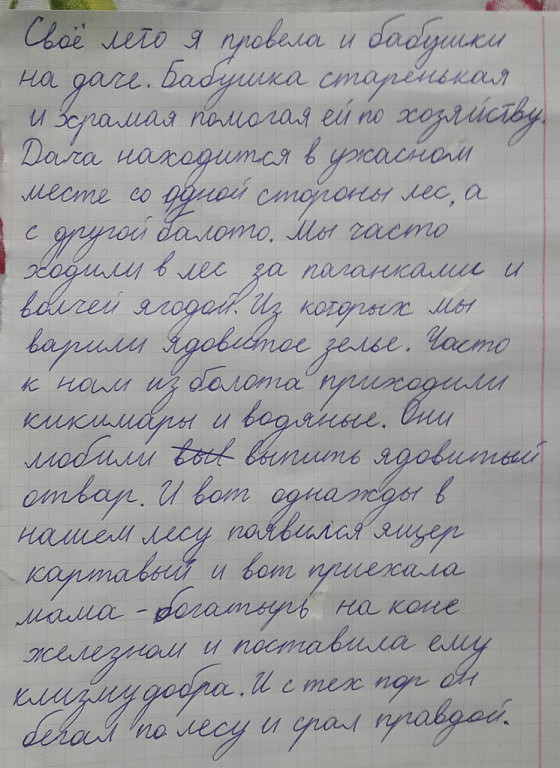 Своё лето я провела и бабушки
на даче. Бабушка старенькая
и храмая помогая ей по хозяйству.
Дача находится в ужасном
месте со одной стороны лес, а
с другой балото. Мы часто
ходили в лес за паганками и
волчей ягодой. Из которых мы
варили ядовитое зелье. Часто
к нам из болота приходили
кикимары и водяные. Они
любили вып выпить ядовитый
отвар. И вот однажды в
нашем лесу появился ящер
картавый и вот приехала
мама - богатырь на коне
железном и поставила ему
клизму добра. И с тех пор он
бегал по лесу и срал правдой.